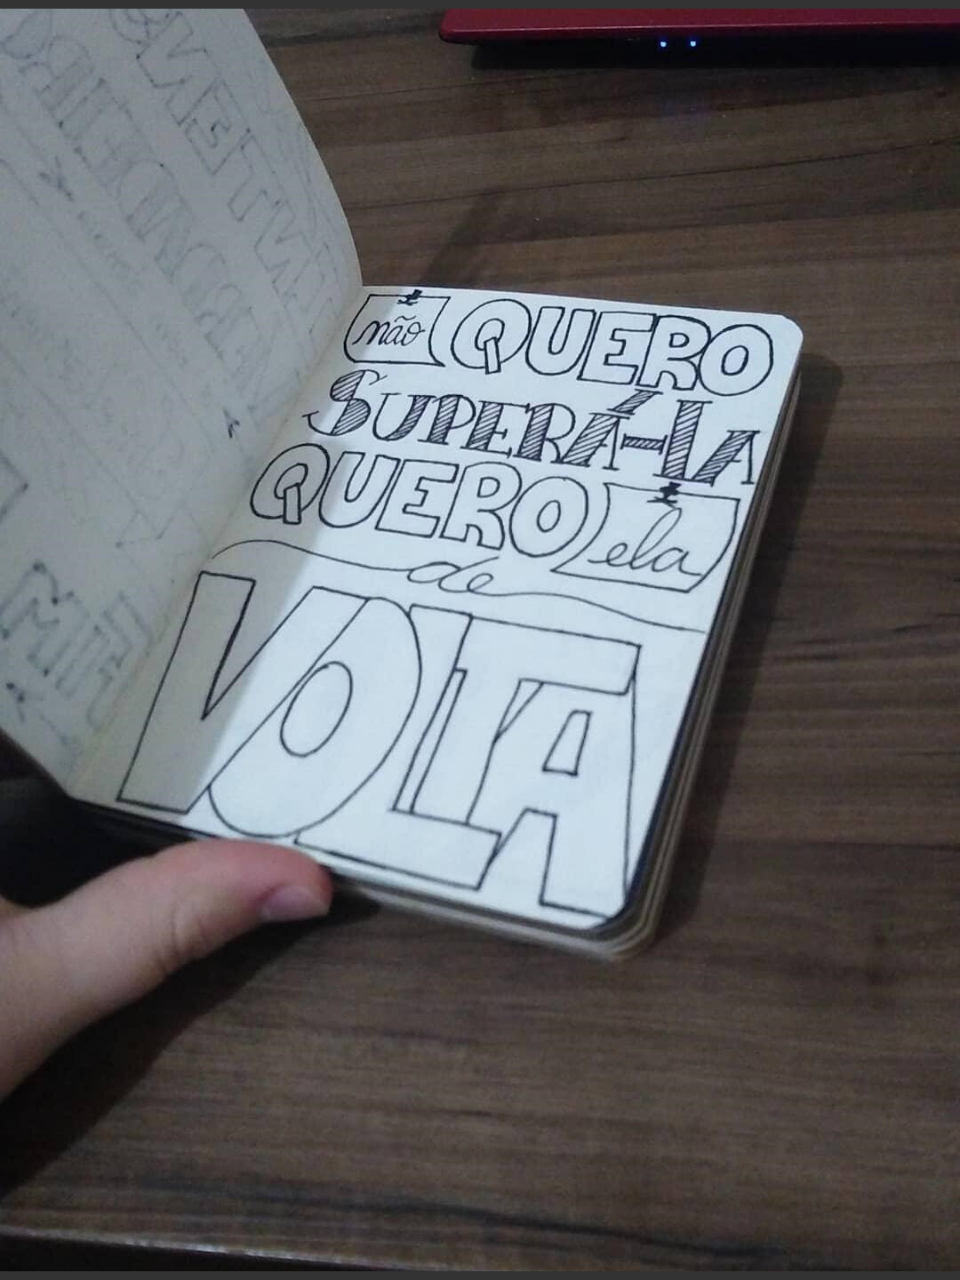 não QUERO
SUPERÁ-LA
QUERO ela
de
VOLTA